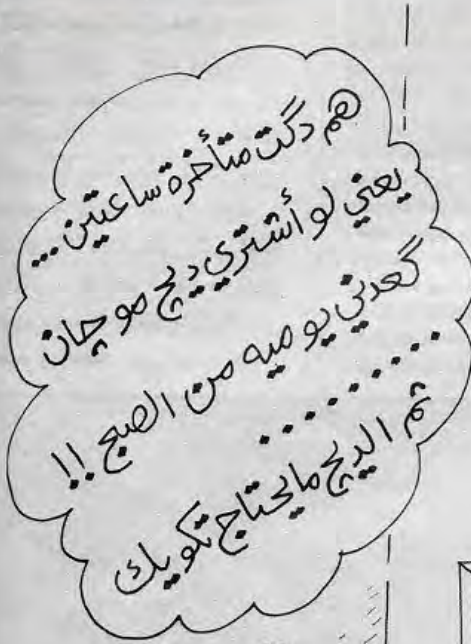 هم دگت متأخرة ساعتين...
يعني لو أشتري ديچ مو چان
گعدني يوميه من الصبح !!
.........
ثم الديچ مايحتاج تكويك